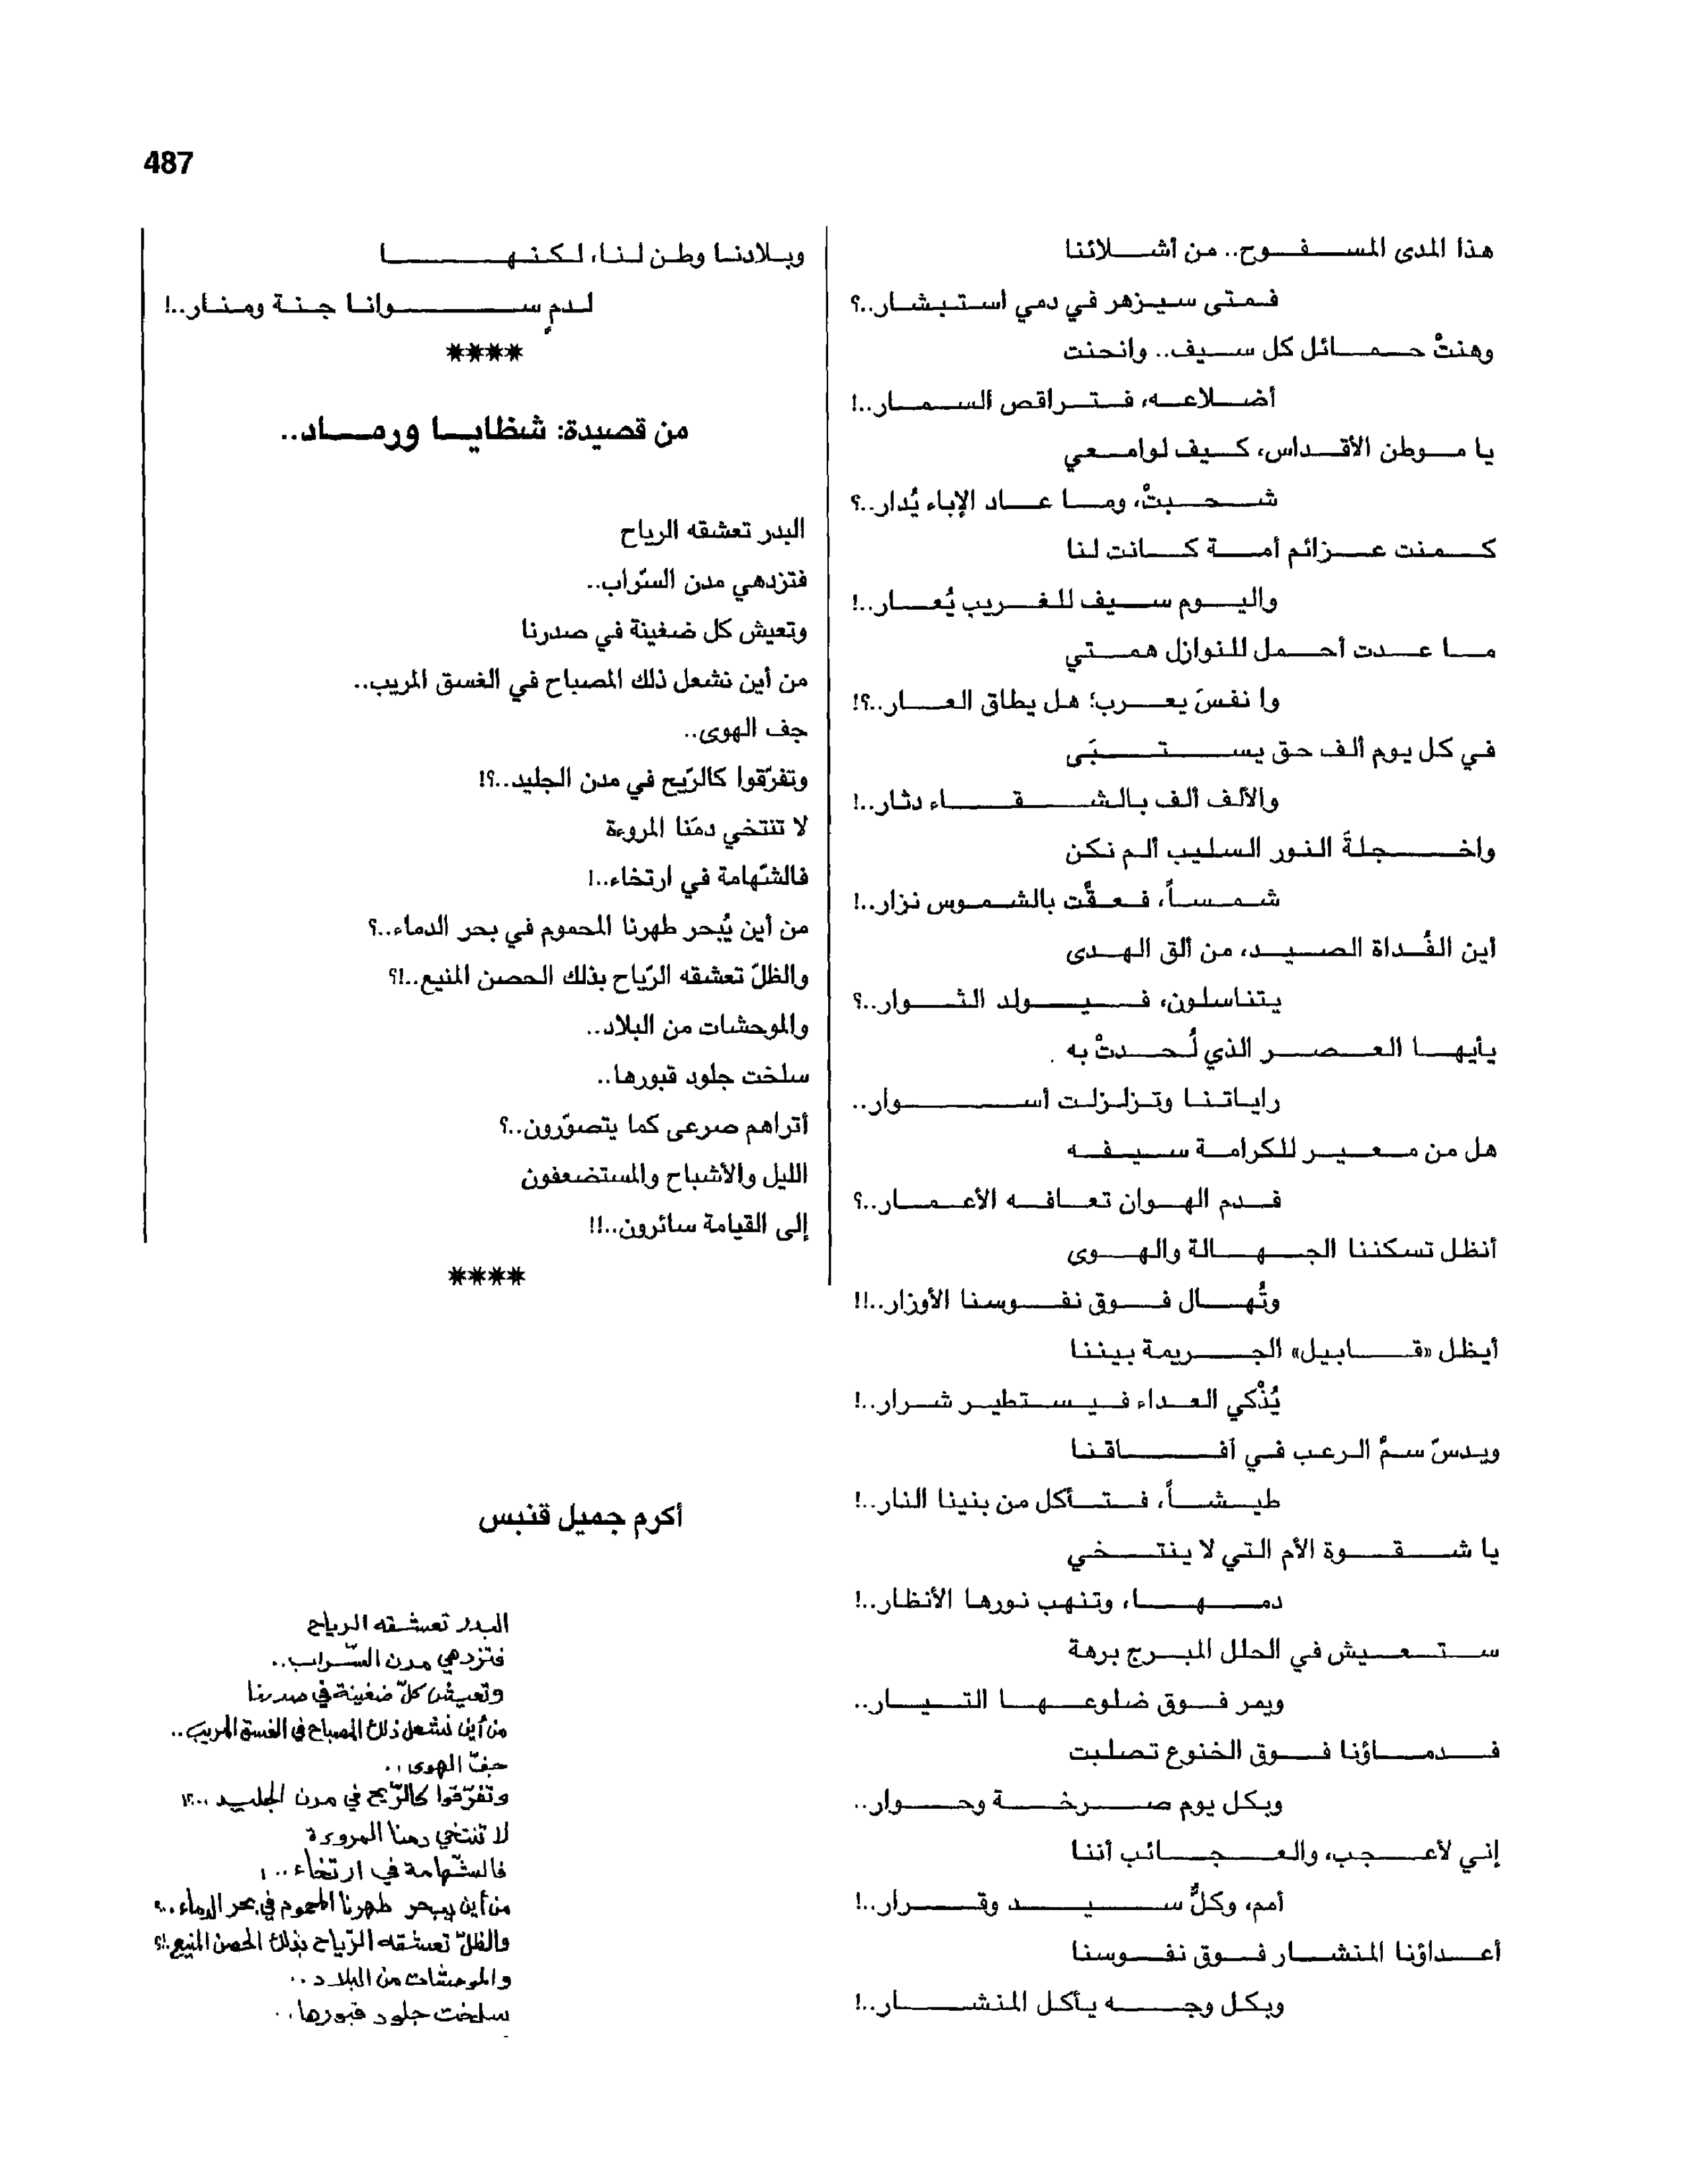 487
هذا المدى المسفوح.. من أشلائنا
فمتى سيزهر في دمي استبشار..؟
وهنتْ حمائل كل سيف.. وانحنت
أضلاعه، فتراقص السمار..!
يا موطن الأقداس، كيف لوامعي
شحبتْ، وما عاد الإباء يُدار..؟
كمنت عزائم أمة كانت لنا
واليوم سيف للغريب يُعار..!
ما عدت أحمل للنوازل همتي
وا نفسَ يعرب؛ هل يطاق العار..؟!
في كل يوم ألف حق يستبَى
والألف ألف بالشقاء دثار..!
واخجلةَ النور السليب ألم نكن
شمساً، فعقَّت بالشموس نزار..!
أين الفُداة الصيد، من ألق الهدى
يتناسلون، فيولد الثوار..؟
يأيها العصر الذي لُحدتْ به
راياتنا وتزلزلت أسوار..
هل من معير للكرامة سيفه
فدم الهوان تعافه الأعمار..؟
أنظل تسكننا الجهالة والهوى
وتُهال فوق نفوسنا الأوزار..!!
أيظل «قابيل» الجريمة بيننا
يُذْكي العداء فيستطير شرار..!
ويدسّ سمَّ الرعب في آفاقنا
طيشاً، فتأكل من بنينا النار..!
يا شقوة الأم التي لا ينتخي
دمها، وتنهب نورها الأنظار..!
ستعيش في الحلل المبرج برهة
ويمر فوق ضلوعها التيار..
فدماؤنا فوق الخنوع تصلبت
وبكل يوم صرخة وحوار..
إني لأعجب، والعجائب أننا
أمم، وكلٌّ سيد وقرار..!
أعداؤنا المنشار فوق نفوسنا
وبكل وجه يأكل المنشار..!
وبلادنا وطن لنا، لكنها
لدمٍ سوانا جنة ومنار..!
****
من قصيدة: شظايا ورماد..
البدر تعشقه الرياح
فتزدهي مدن السّراب..
وتعيش كل ضغينة في صدرنا
من أين نشعل ذلك المصباح في الغسق المريب..
جف الهوى..
وتفرّقوا كالرّيح في مدن الجليد..؟!
لا تنتخي دمَنا المروءة
فالشّهامة في ارتخاء..!
من أين يُبحر طهرنا المحموم في بحر الدماء..؟
والظلّ تعشقه الرّياح بذلك الحصن المنيع..!؟
والموحشات من البلاد..
سلخت جلود قبورها..
أتراهم صرعى كما يتصوّرون..؟
الليل والأشباح والمستضعفون
إلى القيامة سائرون..!!
****
أكرم جميل قنبس
البدر تعشقه الرياح
فتزدهي مدن السّراب..
وتعيش كلّ ضغينة في صدرنا
من أين نشعل ذلك المصباح في الغسق المريب..
جفّ الهوى..
وتفرّقوا كالرّيح في مدن الجليد..؟!
لا تنتخي دمنا المروءة
فالشّهامة في ارتخاء..!
من أين يبحر طهرنا المحموم في بحر الدماء..؟
والظلّ تعشقه الرّياح بذلك الحصن المنيع..!؟
والموحشات من البلاد..
سلخت جلود قبورها..